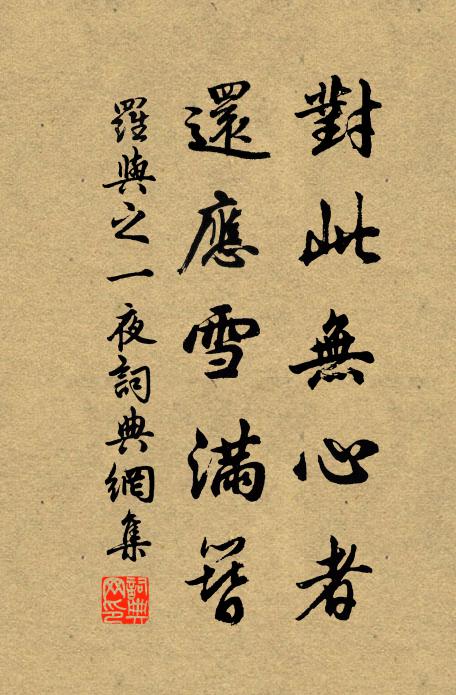 對此無心者
還應雪滿簪
羅與之一夜詞典網集
詞典網印